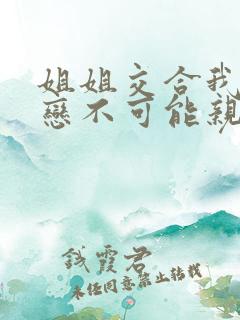 姐姐交合我
戀不可能親
錢霞君
未經同意禁止轉載